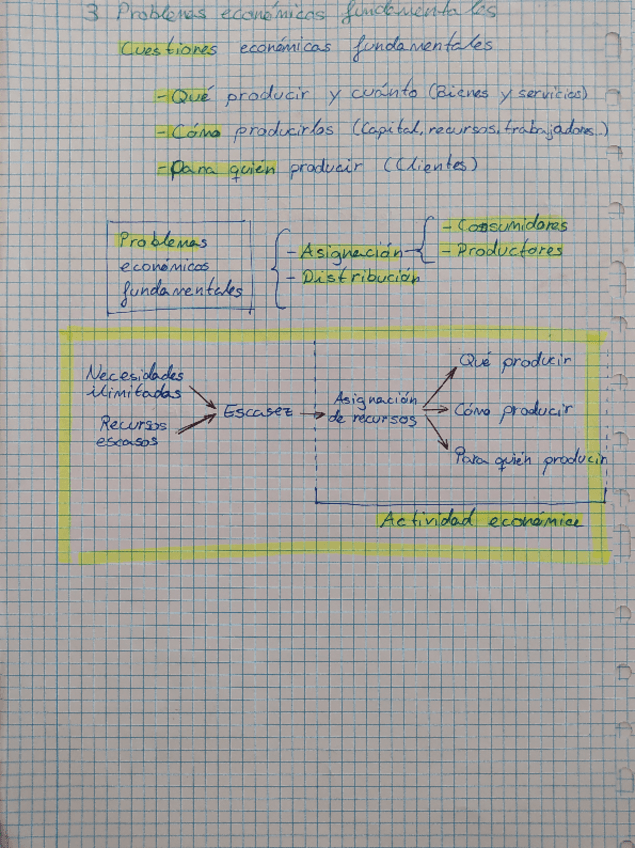 3 Problemas económicos fundamentales
Cuestiones económicas fundamentales
- Qué producir y cuánto (Bienes y servicios)
- Cómo producirlos (Capital, recursos, trabajadores..)
- Para quién producir (Clientes)
Problemas
económicos
fundamentales
- Asignación
- Distribución
- Consumidores
- Productores
Necesidades
ilimitadas
Recursos
escasos
Escasez
Asignación
de recursos
Qué producir
Cómo producir
Para quién producir
Actividad económica